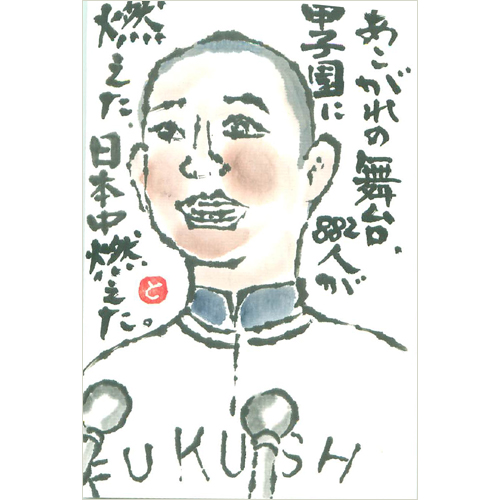 あこがれの舞台、
甲子園に
882人が
燃えた、日本中燃えた。
と
FUKUSH